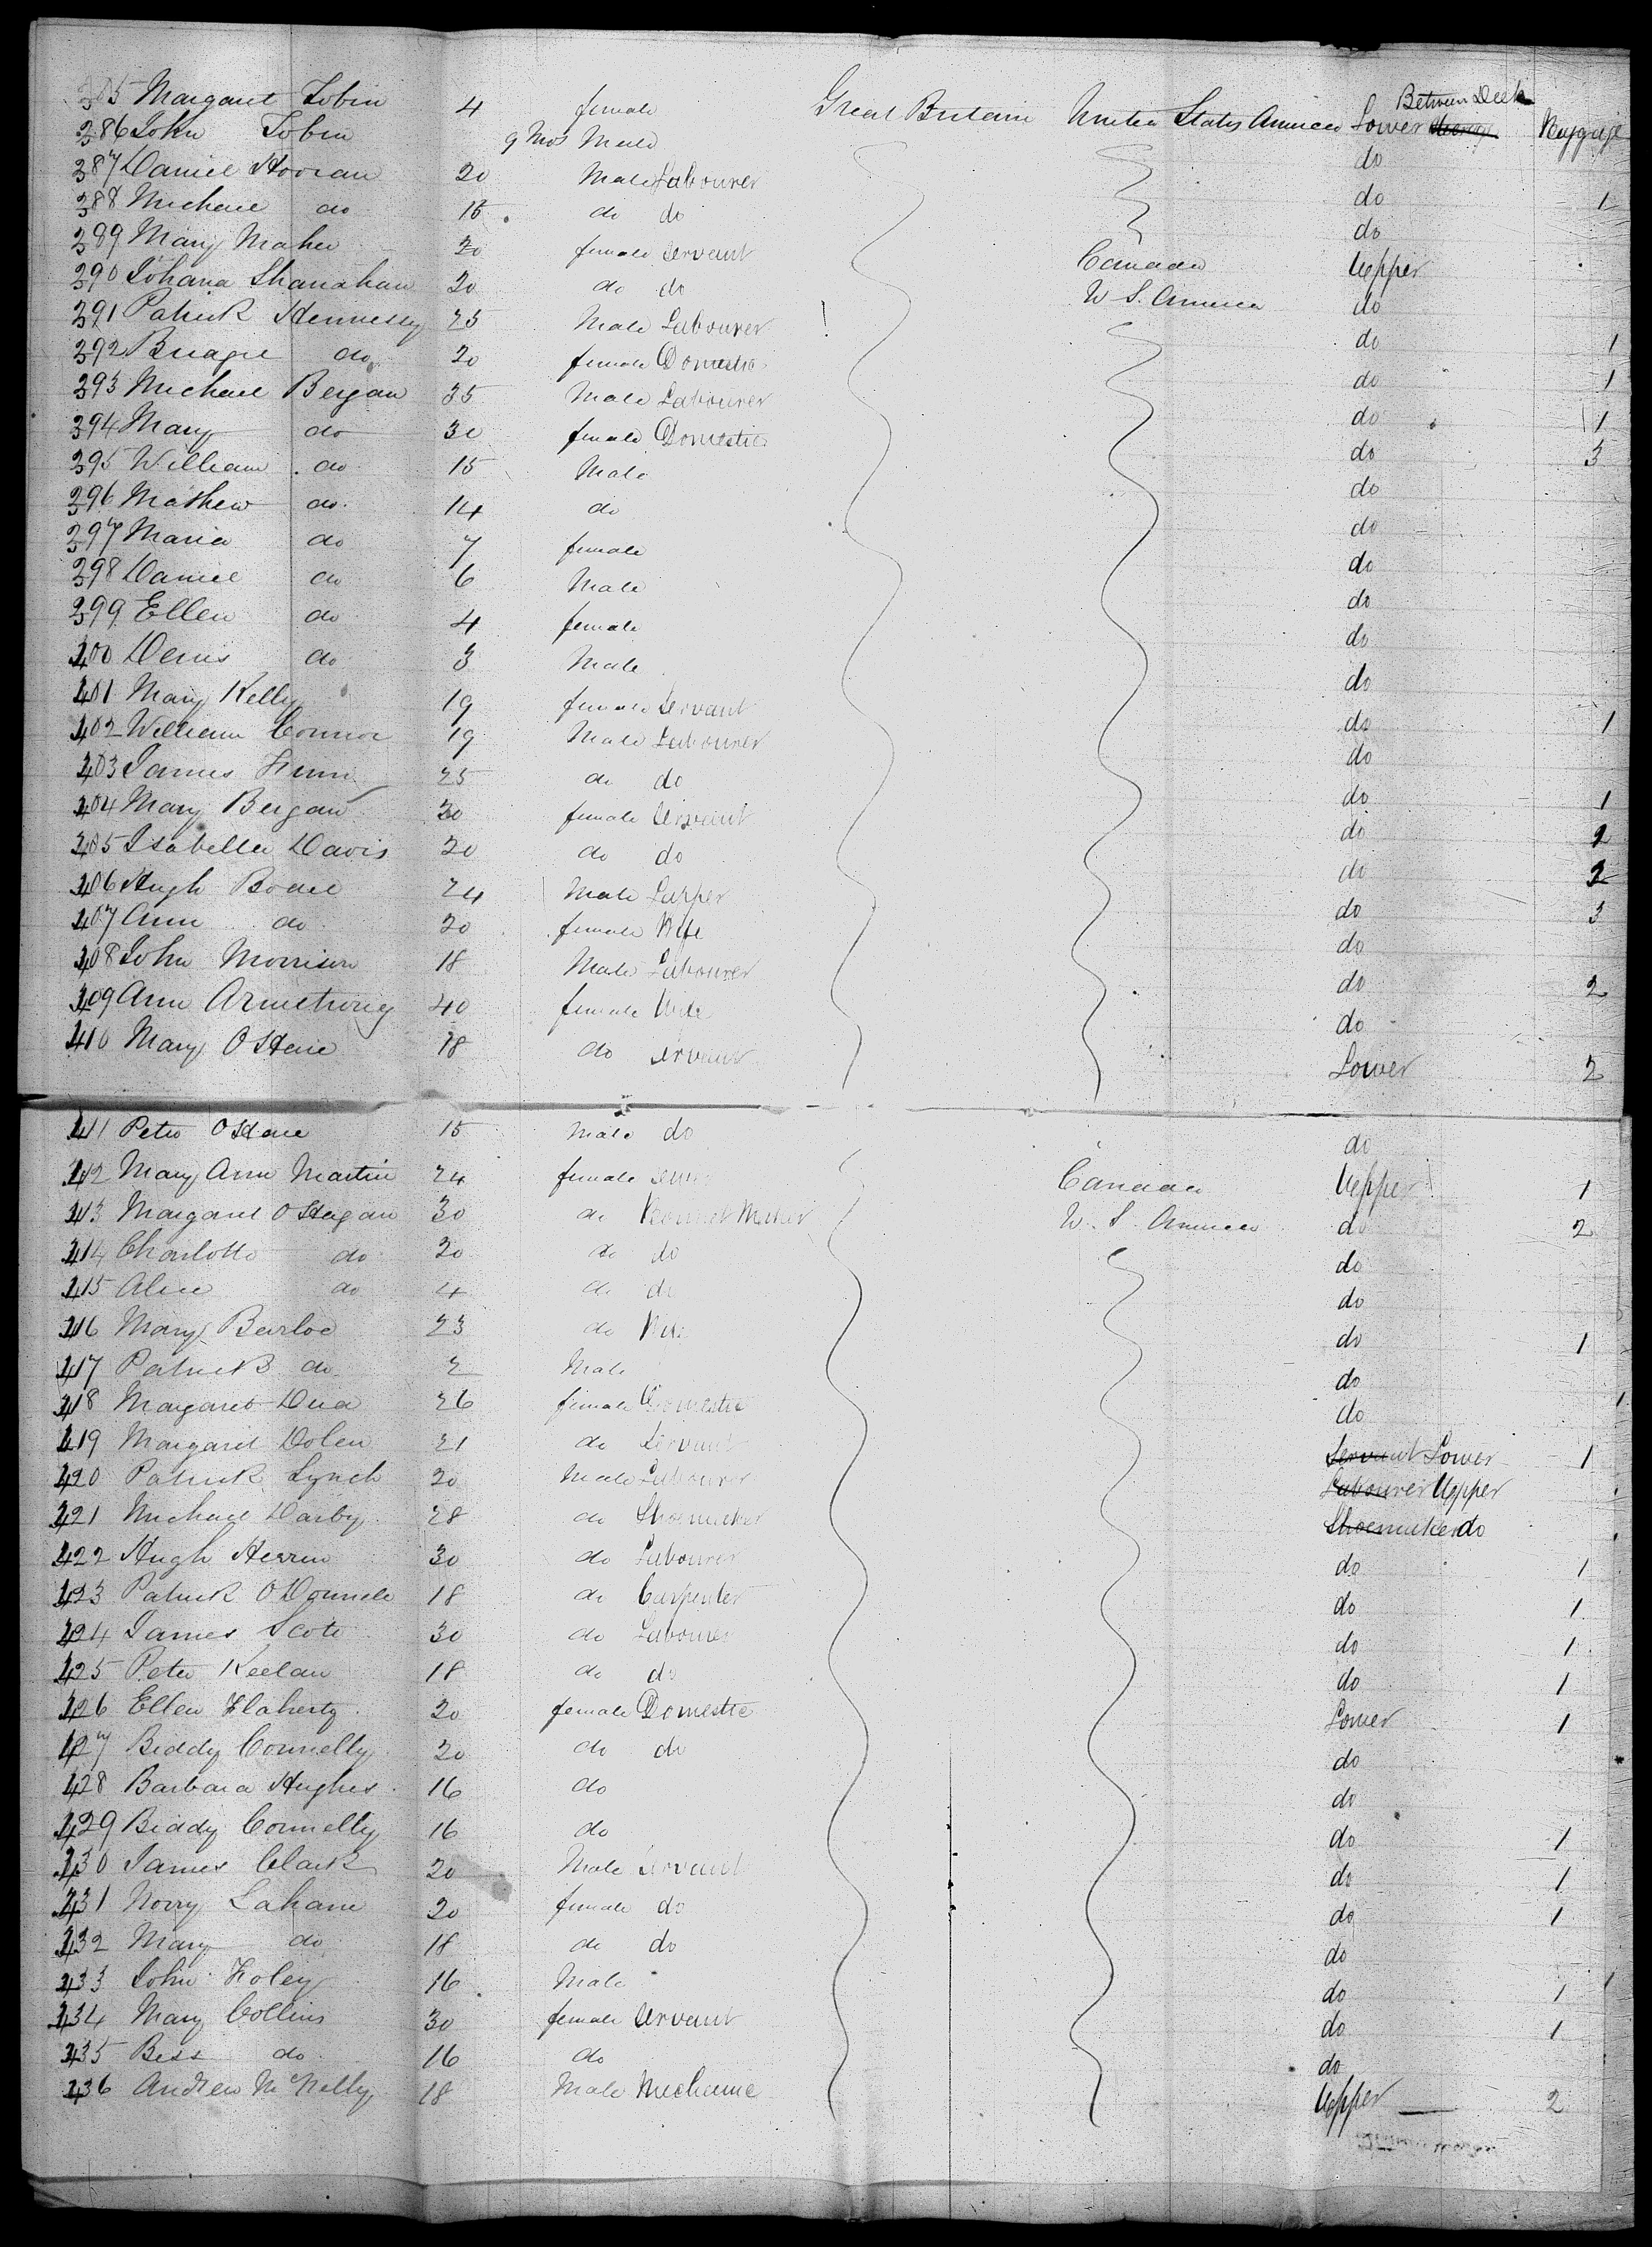 385 Margaret Tobin 4 female Great Britain United States America Between Deck Lower Baggage
386 John Tobin 9 Mos Male do
387 Daniel Hooran 20 Male Labourer do 1
388 Michael do 16 do do do
389 Mary Maher 20 female Servant Canada Upper
390 Johana Shanahan 20 do do U S. America do
391 Patrick Hennessy 25 Male Labourer do 1
392 Bridget do 20 female Domestic do 1
393 Michael Bergan 35 Male Labourer do 1
394 Mary do 30 female Domestic do 3
395 William do 15 Male do
396 Mathew do 14 do do
397 Maria do 7 female do
398 Daniel do 6 Male do
399 Ellen do 4 female do
400 Denis do 3 Male do
401 Mary Kelly 19 female Servant do 1
402 William Connor 19 Male Labourer do
403 James Finn 25 do do do 1
404 Mary Bergan 30 female Servant do 2
405 Isabella Davis 20 do do do 2
406 Hugh 24 Male do 3
407 Ann do 20 female Wife do
408 John Morrison 18 Male Labourer do 2
409 Ann Armstrong 40 female Wife do
410 Mary O Hare 18 do Servant Lower 2
411 Peter O Hare 15 Male do do
412 Mary Ann Martin 24 female Canada Upper 1
413 Margaret O Hagan 30 do Bonnet Maker U. S. America do 2
414 Charlotte do 20 do do do
415 Alice do 4 do do do
416 Mary Barloe 23 do Wife do 1
417 Patrick do 2 Male do
418 Margaret 26 female Domestic do 1
419 Margaret Dolen 21 do Servant Servant Lower 1
420 Patrick Lynch 20 Male Labourer Labourer Upper
421 Michael Darby 28 do Shoemaker Shoemaker do
422 Hugh Herrin 30 do Labourer do 1
423 Patrick O Donnell 18 do Carpenter do 1
424 James Scott 30 do Labourer do 1
425 Peter Keelan 18 do do do 1
426 Ellen Flaherty 20 female Domestic Lower 1
427 Biddy Connelly 20 do do do
428 Barbara Hughes 16 do do
429 Biddy Connelly 16 do do 1
430 James Clark 20 Male Servant do 1
431 Norry Lahane 20 female do do 1
432 Mary do 18 do do do
433 John Foley 16 Male do 1
434 Mary Collins 30 female Servant do 1
435 Bess do 16 do do
436 Andrew McNelly 18 Male Mechanic Upper 2